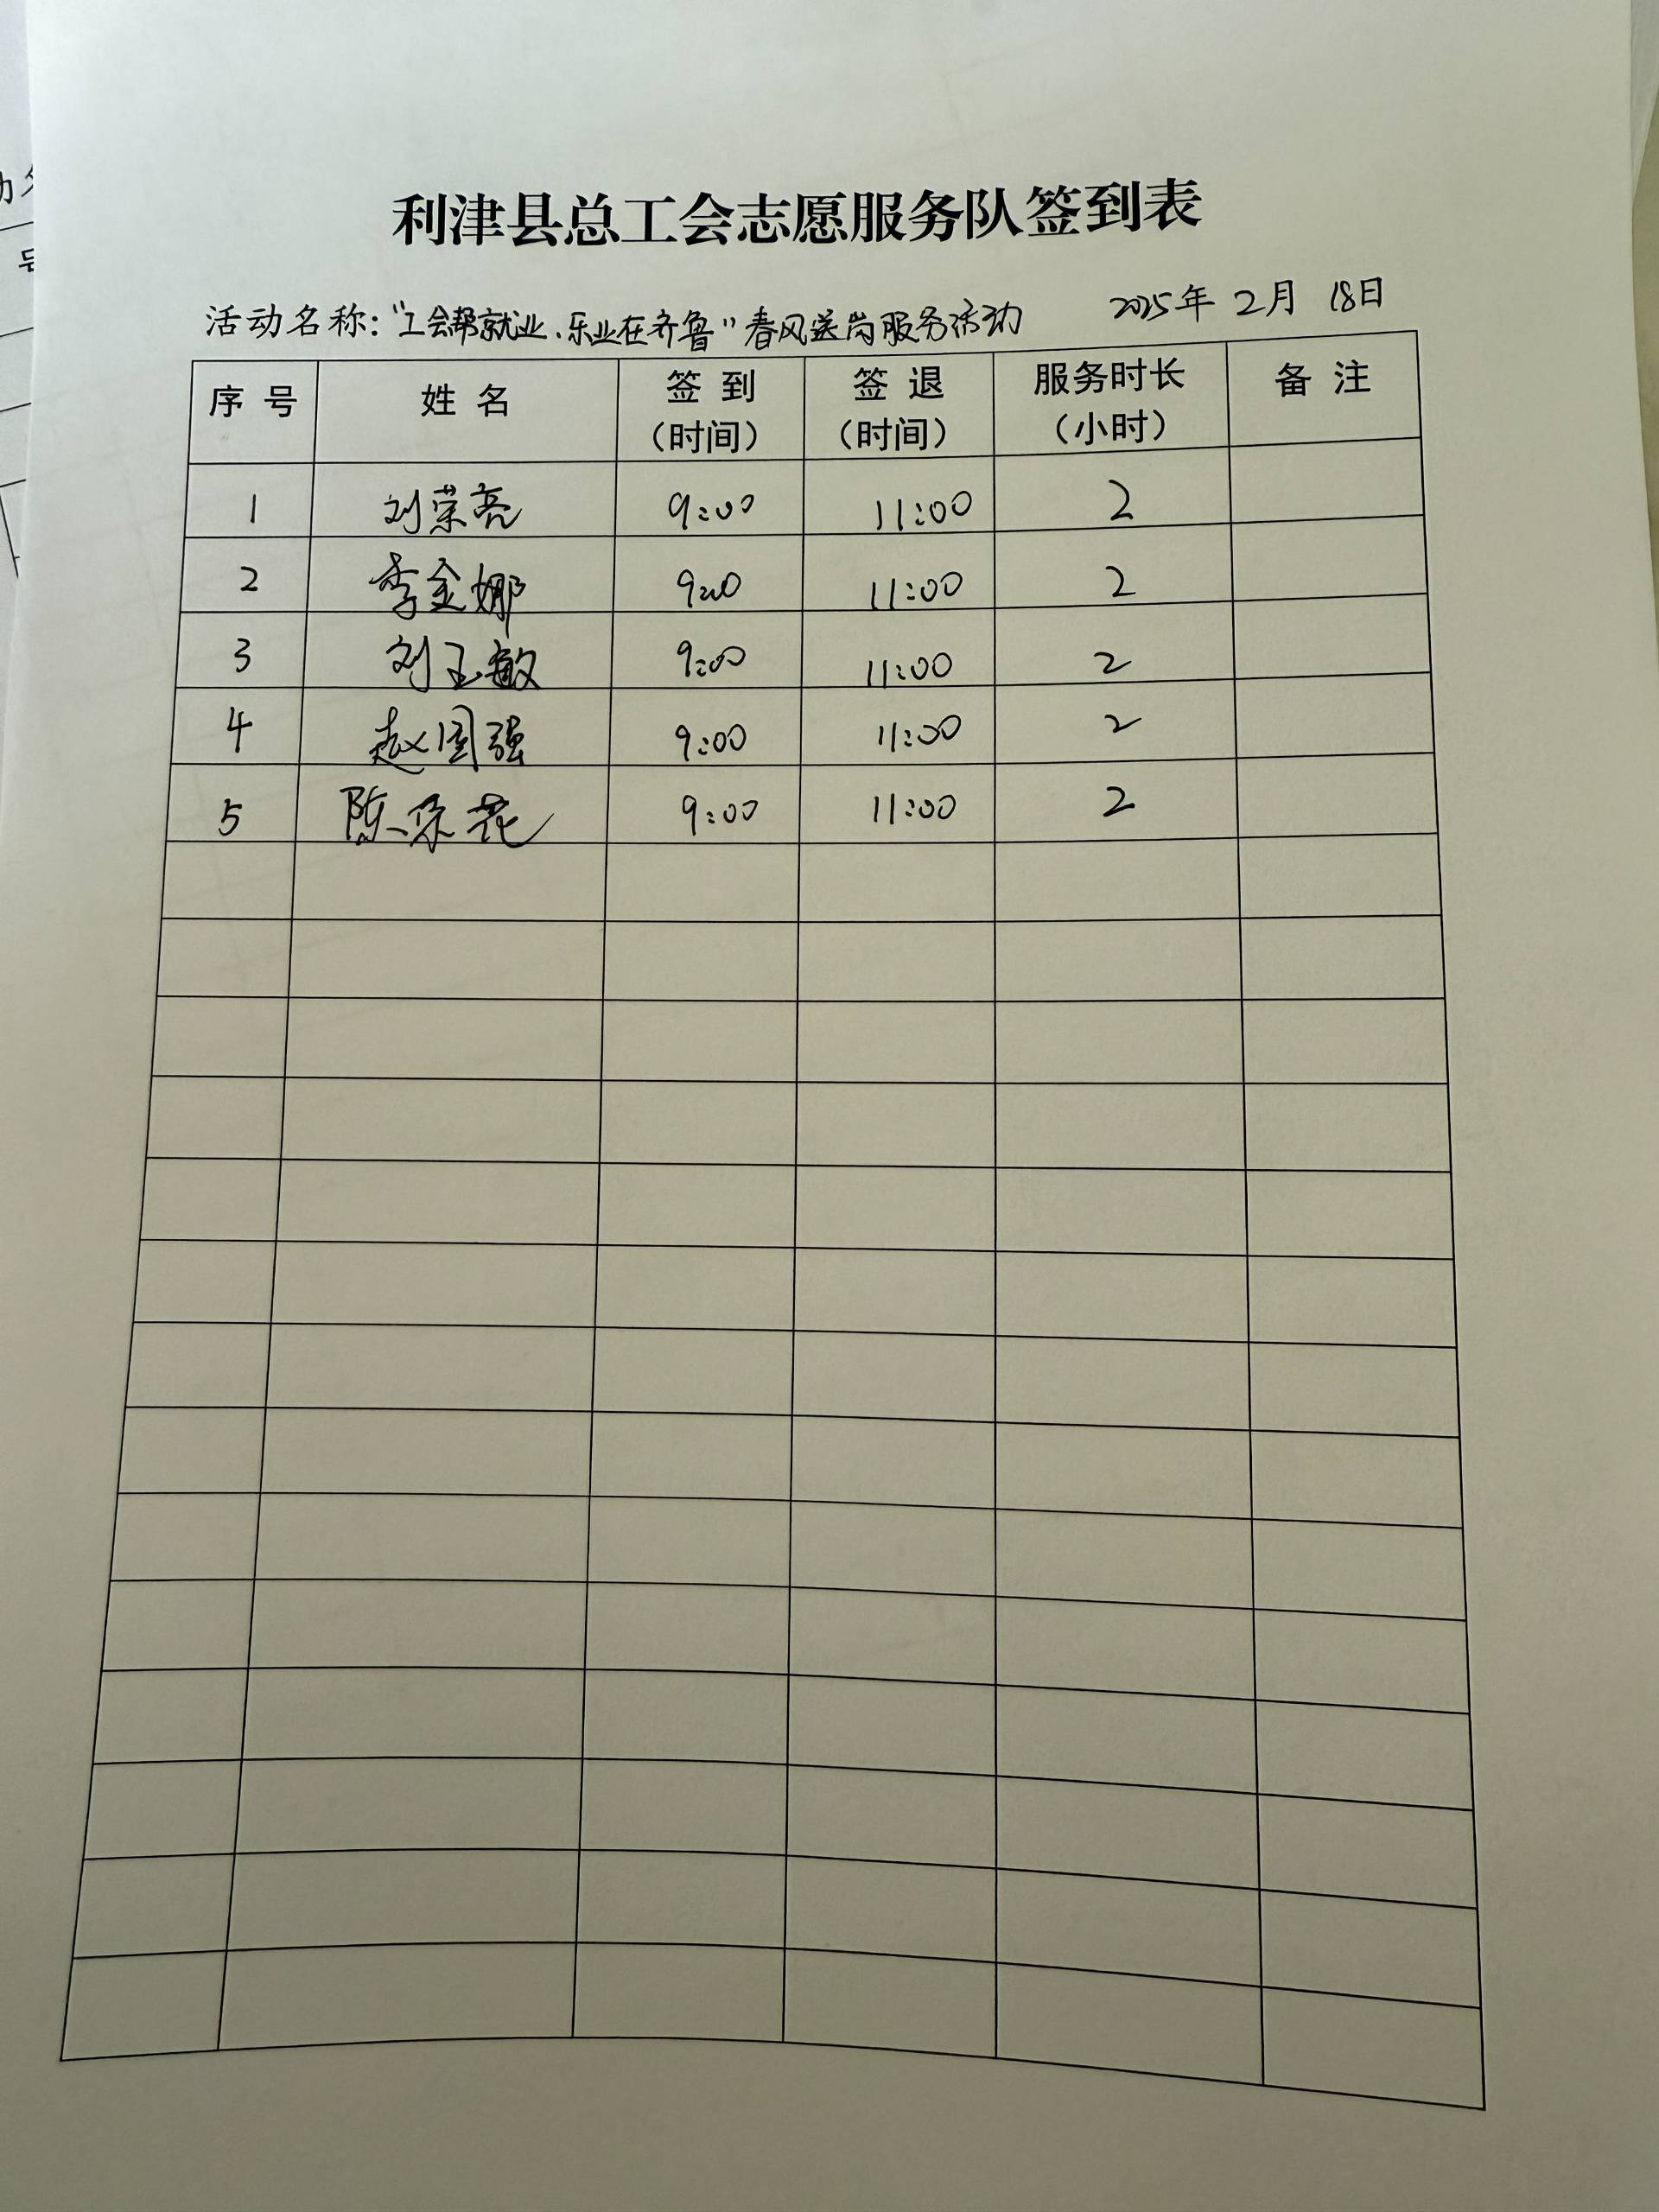 利津县总工会志愿服务队签到表
活动名称:“工会帮就业、乐业在齐鲁”春风送岗服务活动 2025年 2月 18日
序号 姓名 签到(时间) 签退(时间) 服务时长(小时) 备注
1 刘荣亮 9:00 11:00 2
2 李金娜 9:00 11:00 2
3 刘玉敏 9:00 11:00 2
4 赵国强 9:00 11:00 2
5 陈 花 9:00 11:00 2